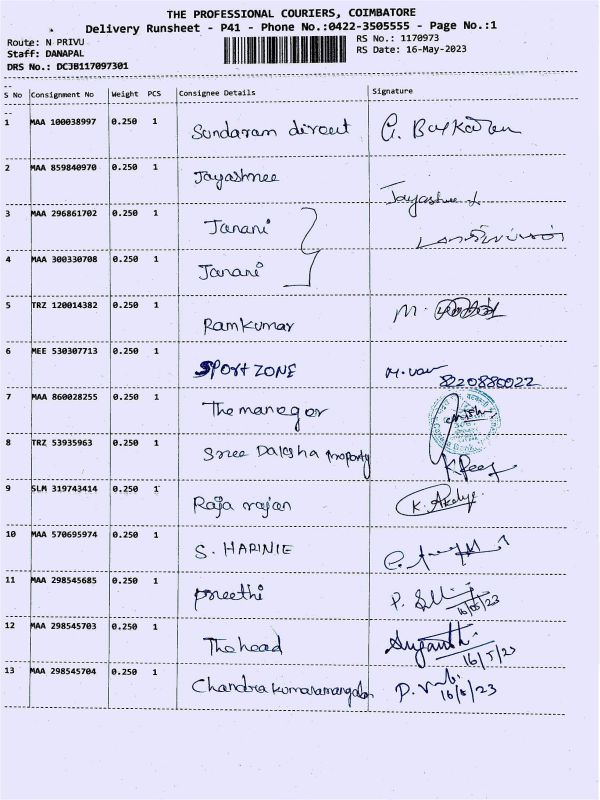 THE PROFESSIONAL COURIERS, COIMBATORE
Delivery Runsheet - P41 - Phone No.:0422-3505555 - Page No.:1
Route: N PRIVU
RS No.: 1170973
Staff: DANAPAL
RS Date: 16-May-2023
DRS No.: DCJB117097301
S No Consignment No Weight PCS Consignee Details Signature
1 MAA 100038997 0.250 1 Sundaram direct G. Baskaran
2 MAA 859840970 0.250 1 Jayashree Jayashree
3 MAA 296861702 0.250 1 Janani
4 MAA 300330708 0.250 1 Janani
5 TRZ 120014382 0.250 1 Ramkumar M.
6 MEE 530307713 0.250 1 SPORT ZONE
8220880022
7 MAA 860028255 0.250 1 The manager
8 TRZ 53935963 0.250 1 Sree Daksha property
9 SLM 319743414 0.250 1 Raja rajan K.
10 MAA 570695974 0.250 1 S. HARINIE
11 MAA 298545685 0.250 1 preethi P.
16/05/23
12 MAA 298545703 0.250 1 The head
16/5/23
13 MAA 298545704 0.250 1 Chandra kumaramangalam P.
16/5/23